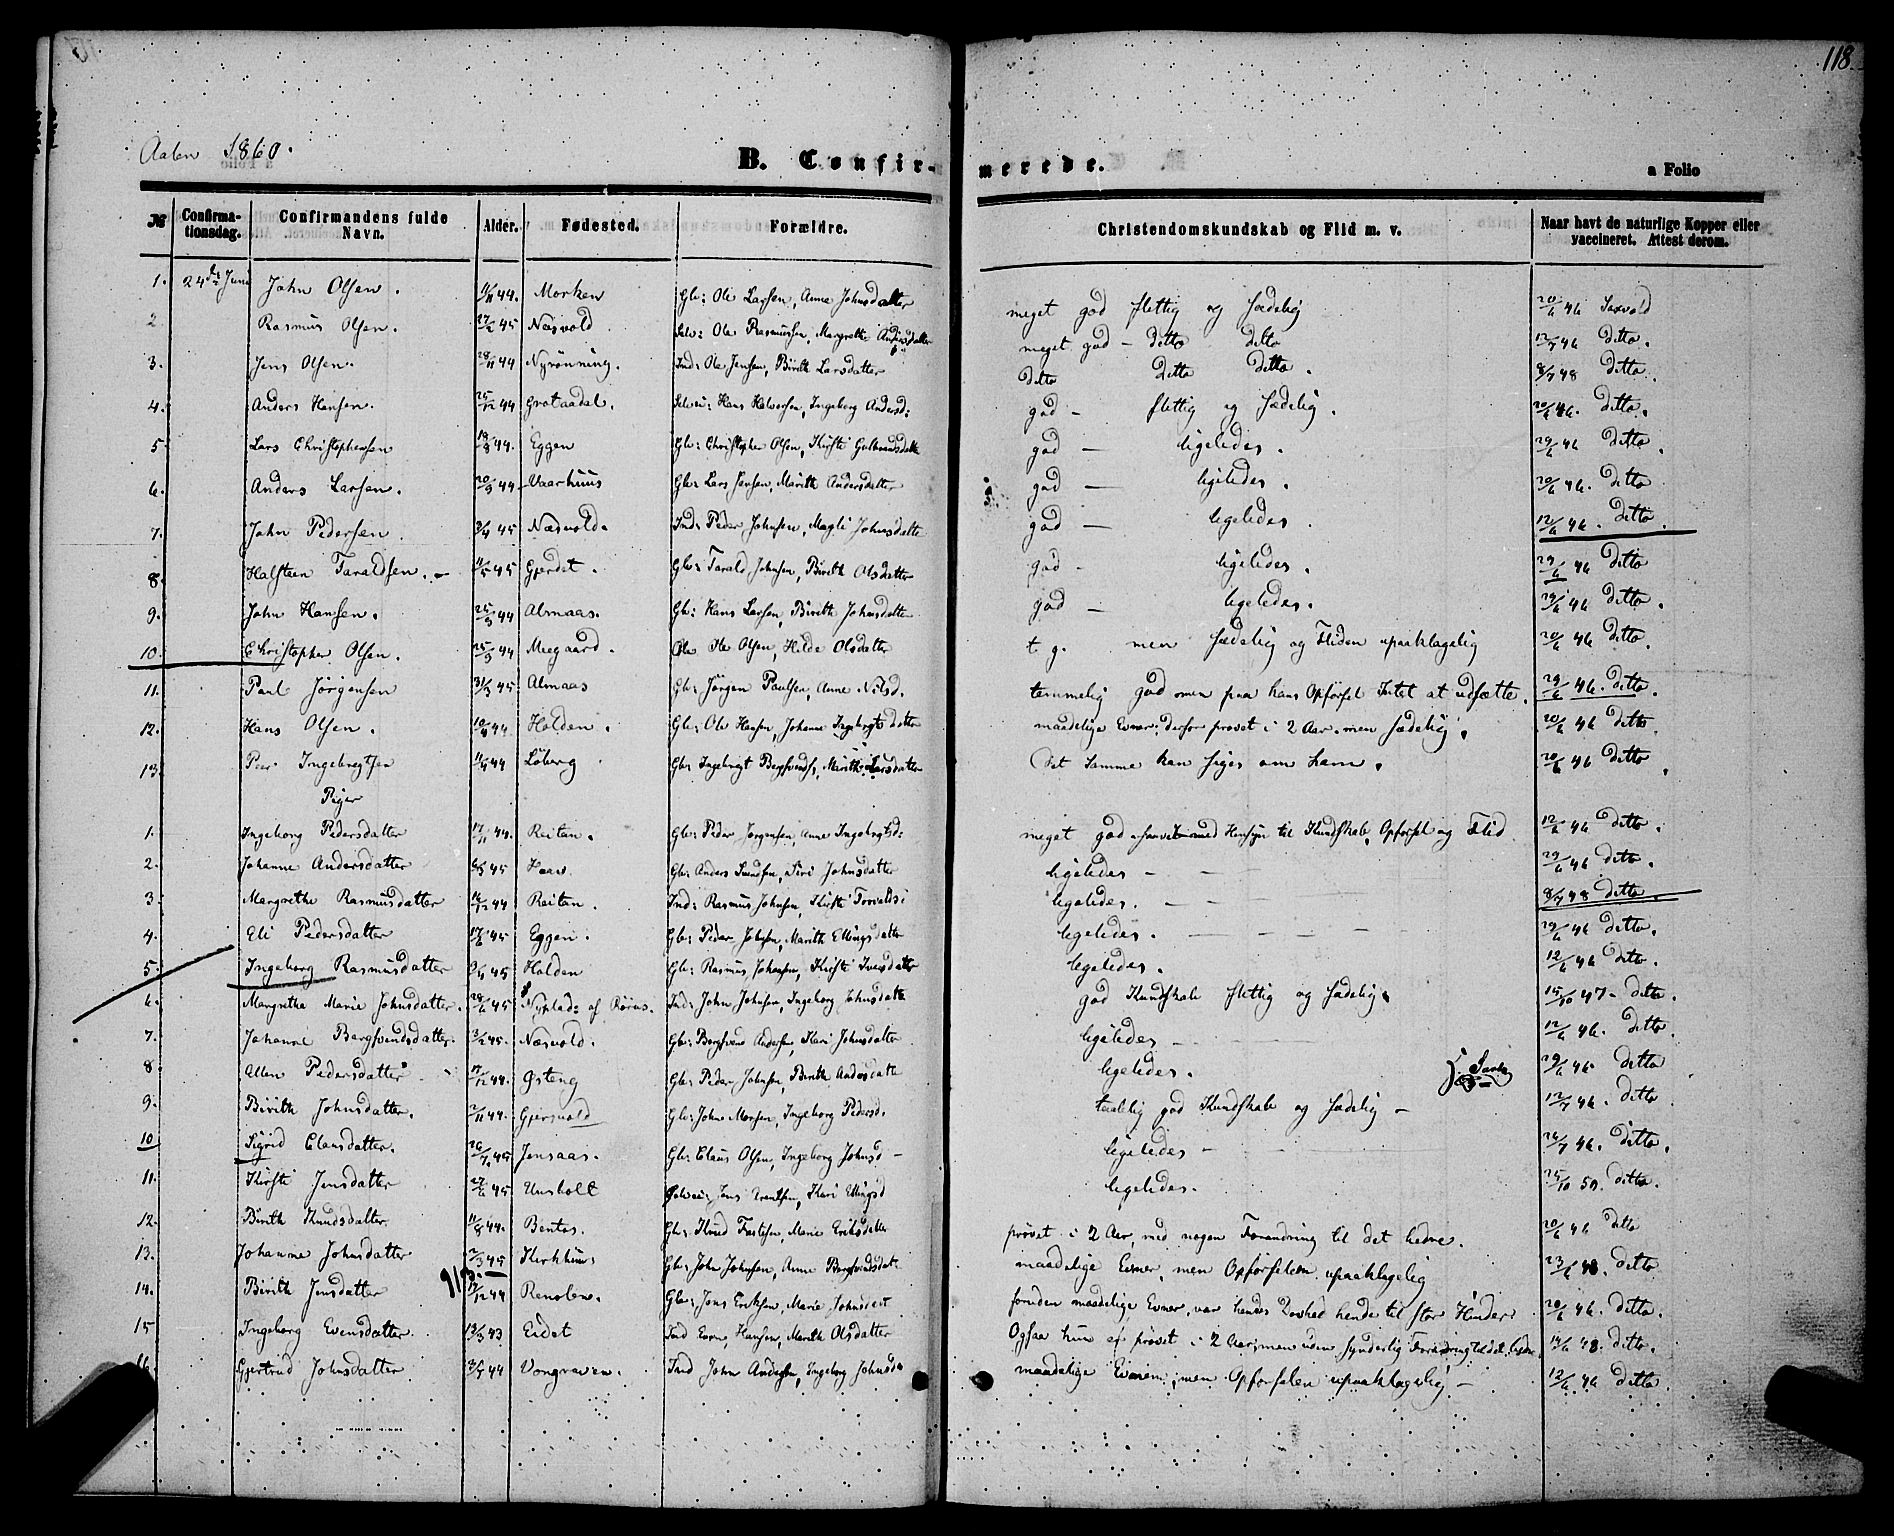 118.
Aalen 1860.
B. Confirmerede.
a Folio
№ Confirmationsdag. Confirmandens fulde Navn. Alder. Fødested. Forældre. Christendomskundskab og Flid m. v. Naar havt de naturlige Kopper eller vaccineret. Attest derom.
1. 24de Juni John Olsen. 11/11 44. Morken Gb: Ole Larsen, Anne Johnsdatter meget god flittig og sædelig 20/6 46
2. Rasmus Olsen. 27/2 45 Næsvold Selv: Ole Rasmussen, Margrethe meget god - ditto ditto 12/7 46 ditto.
3. Jens Olsen. 28/11 44 Nyrönning. Ind: Ole Jensen, Birith Larsdatter ditto ditto ditto. 8/7 48 ditto.
4. Anders Hansen. 25/12 44 Grotaadal. Selvei: Hans Halvorsen, Ingeborg Andersd: god - flittig og sædelig. 20/6 46. ditto.
5. Lars Christophersen 18/8 44. Eggen Gb: Christopher Olsen, Kirsti god - ligeledes. 29/6 46 ditto.
6. Anders Larsen. 20/9 44. Vaarhuus Gb: Lars Jensen, Marith Andersdatter god - ligeledes. 20/6 46. ditto
7. John Pedersen 3/4 45 Næsvold. Ind: Peder Johnsen, Magli Johnsdatte god - ligeledes. 12/6 46. ditto.
8. Halsteen Taraldsen. - 11/5 45 Gjerdet. Gb: Tarald Johnsen, Birith Olsdatter god - ligeledes. 29/6 46 ditto
9. John Hansen. 25/3 44 Almaas. Gb: Hans Larsen, Birith Johnsdatte god - ligeledes. 29/6 46 ditto.
10. Christopher Olsen. 25/9 44 Moegaard. Ole Olsen, Hilde Olsdatter t. g. men sædelig og Fliden upaaklagelig 20/6 46 ditto.
11. Paul Jörgensen 31/3 45 Almaas Gb: Jörgen Paulsen, Anne Nilsd. temmelig god men paa hans Opførsel Intet at udsætte. 29/6 46. ditto.
12. Hans Olsen. 10/4 44 Holden. Gb: Ole Hansen, Johanne Ingebrigtsdatter maadelige Evner, derfor prøvet i 2 Aar, men sædelig. 20/6 46 ditto.
13. Peer Ingebrigtsen 11/4 44 Löberg Gb: Ingebrigt Bergsvends., Marith Larsdatter Det Samme kan siges om ham. 20/6 46 ditto.
Piger
1. Ingeborg Pedersdatter 17/11 44. Reitan. Gb: Peder Jørgensen, Anne Ingebrigtsd: meget god saavel med Hensyn til Kundskab, Opførsel og Flid 12/6 46 ditto.
2. Johanne Andersdatter 45 Gb: Anders Siri Johnsdatter ligeledes - - - 29/6 46 ditto.
3. Margrethe Rasmusdatter 16/12 44 Reitan. Ind: Rasmus Johnsen, Kirsti ligeledes. - - - 8/7 48 ditto.
4. Eli Pedersdatter 17/6 45 Eggen. Gb: Peder Johnsen, Marith Ellingsdatter ligeledes. - - - 29/6 46 ditto.
5. Ingeborg Rasmusdatter 45 Holden Gb: Rasmus Johansen, Kirsti Iversdatter ligeledes. 12/6 46 ditto.
6. Margrethe Marie Johnsdatter. 28/6 45 Nyplads af Röros. Ind: John Johnsen, Ingeborg Johnsdatte god Kundskab flittig og sædelig. 15/10 47 - ditto.
7. Johanne Bergsvendsdatter. 3/2 45. Næsvold. Gb: Bergsvend Andersen, Kari Johnsdatter ligeledes - 12/6 46. ditto.
8. Ellen Pedersdatter 17/12 44. Østeng Gb: Peder Johnsen, Birith Andersdatte ligeledes. 29/6 46 ditto
9. Birith Johnsdatter. 2/11 44. Gjersvold Gb: John Morsen, Ingeborg Pedersd. taalelig god Kundskab og sædelig - 12/7 46. ditto.
10 Sigrid Clausdatter. 26/7 45 Jensaas. Gb: Claus Olsen, Ingeborg Johnsd - ligeledes - 26/7 46. ditto.
11. Kirsti Jensdatter 27/6 45 Unsholt Selvei: Jens Kari Ellingsd ligeledes. 25/10 50. ditto.
12. Birith Knudsdatter. 11/8 44. Bentos. Gb: Knud Marie Eriksdatter prøvet i 2 Aar, med nogen Forandring til det bedre. 20/6 46 ditto
13. Johanne Johnsdatter 2/3 45 Kirkhuus Gb: John Johnsen, Anne Bergsvendsdatt maadelige Evner, men Opførselen upaaklagelig 23/6 48. ditto.
14. Birith Jensdatter 17/12 44 Renolen. Gb: Jens Eriksen, Marie Johnsdatt foruden maadelige Evner, var hendes hende til stor Hinder. 20/6 46. ditto.
15 Ingeborg Evensdatter 13/3 43 Eidet Ind Even Hansen, Marith Olsdatter Ogsaa hun er prøvet i 2 Aar, men uden synderlig Forandring til det bedre. 14/6 48. ditto.
16. Gjertrud Johnsdatter 3/7 44 Vongraven. Ind John Andersen, Ingeborg Johnsda maadelige Evnerne, men Opførselen upaaklagelig - 12/6 46 ditto.